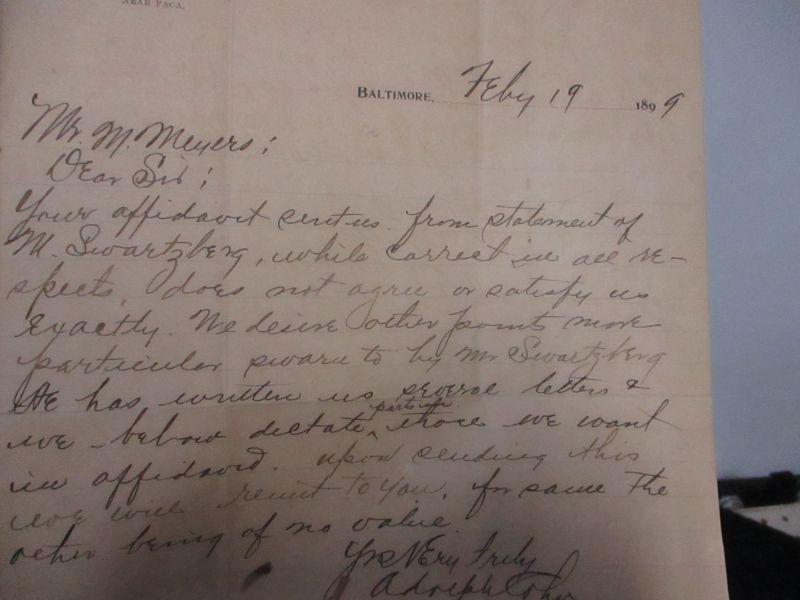 NEAR PACA.
BALTIMORE, Feby 19 1899
Mr. M. Meyers:
Dear Sir;
Your affidavit sent us from statement of
M. Swartzberg, while correct in all re-
spects, does not agree or satisfy us
exactly. We desire other points more
particular sworn to by Mr Swartzberg
He has written us several letters &
we below dictate parts of those we want
in affidavid. Upon sending this
we will remit to you, for same the
other being of no value.
Yrs Very truly
Adolph